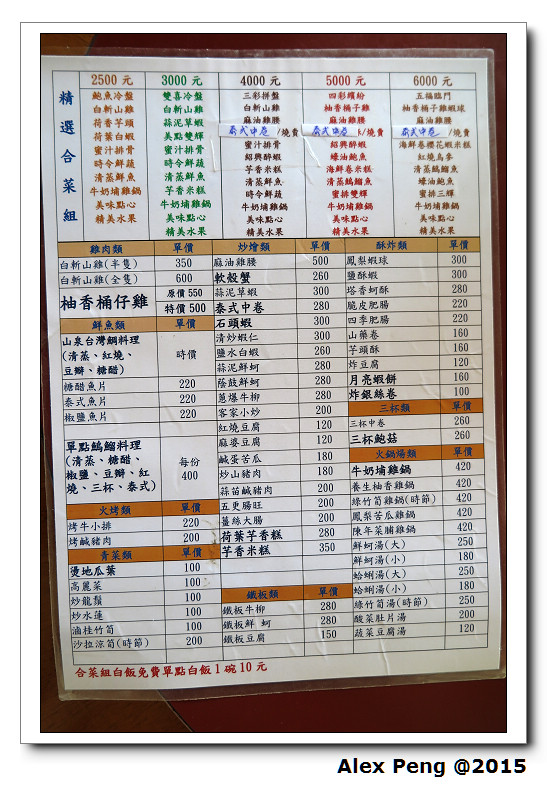 精選合菜組
2500 元
鮑魚冷盤
白斬山雞
荷香芋頭
荷葉白蝦
蜜汁排骨
時令鮮蔬
清蒸鮮魚
牛奶埔雞鍋
美味點心
精美水果
3000 元
雙喜冷盤
白斬山雞
蒜泥草蝦
美點雙輝
蜜汁排骨
時令鮮蔬
清蒸鮮魚
芋香米糕
牛奶埔雞鍋
美味點心
精美水果
4000 元
三彩拼盤
白斬山雞
麻油雞腰
泰式中卷 /燒賣
蜜汁排骨
紹興醉蝦
芋香米糕
清蒸鮮魚
時令鮮蔬
牛奶埔雞鍋
美味點心
精美水果
5000 元
四彩繽紛
柚香桶子雞
麻油雞腰
泰式中卷 /燒賣
紹興醉蝦
蠔油鮑魚
海鮮卷米糕
清蒸鱘鰡魚
時令鮮蔬
牛奶埔雞鍋
美味點心
精美水果
6000 元
五福臨門
柚香桶子雞蝦球
麻油雞腰
泰式中卷 /燒賣
海鮮卷櫻花蝦米糕
紅燒烏參
清蒸鱘鰡魚
蠔油鮑魚
美點三輝
牛奶埔雞鍋
美味點心
精美水果
雞肉類 單價
白斬山雞(半隻) 350
白斬山雞(全隻) 600
柚香桶仔雞 原價 550
特價 500
鮮魚類 單價
山泉台灣鯛料理
(清蒸、紅燒、
豆瓣、糖醋) 時價
糖醋魚片 220
泰式魚片 220
椒鹽魚片 220
單點鱘鰡料理
(清蒸、糖醋、
椒鹽、豆瓣、紅
燒、三杯、泰式) 每份
400
火烤類 單價
烤牛小排 220
烤鹹豬肉 200
青菜類 單價
燙地瓜葉 100
高麗菜 100
炒龍鬚 100
炒水蓮 100
滷桂竹筍 100
沙拉涼筍(時節) 200
炒燴類 單價
麻油雞腰 500
軟殼蟹 260
蒜泥草蝦 300
泰式中卷 280
石頭蝦 300
清炒蝦仁 300
鹽水白蝦 260
蒜泥鮮蚵 280
蔭鼓鮮蚵 280
蔥爆牛柳 280
客家小炒 200
紅燒豆腐 120
麻婆豆腐 120
鹹蛋苦瓜 180
炒山豬肉 180
蒜苗鹹豬肉 200
五更腸旺 200
薑絲大腸 200
荷葉芋香糕 280
芋香米糕 350
鐵板類 單價
鐵板牛柳 280
鐵板鮮 蚵 280
鐵板豆腐 150
酥炸類 單價
鳳梨蝦球 300
鹽酥蝦 300
塔香蚵酥 280
脆皮肥腸 220
四季肥腸 220
山藥卷 160
芋頭酥 160
炸豆腐 120
月亮蝦餅 160
炸銀絲卷 100
三杯類 單價
三杯中卷 260
三杯鮑菇 260
火鍋湯類 單價
牛奶埔雞鍋 420
養生柚香雞鍋 420
綠竹筍雞鍋(時節) 420
鳳梨苦瓜雞鍋 420
陳年菜脯雞鍋 420
鮮蚵湯(大) 250
鮮蚵湯(小) 180
蛤蜊湯(大) 250
蛤蜊湯(小) 180
綠竹筍湯(時節) 250
酸菜肚片湯 200
蔬菜豆腐湯 120
合菜組白飯免費單點白飯1碗10元
Alex Peng @2015